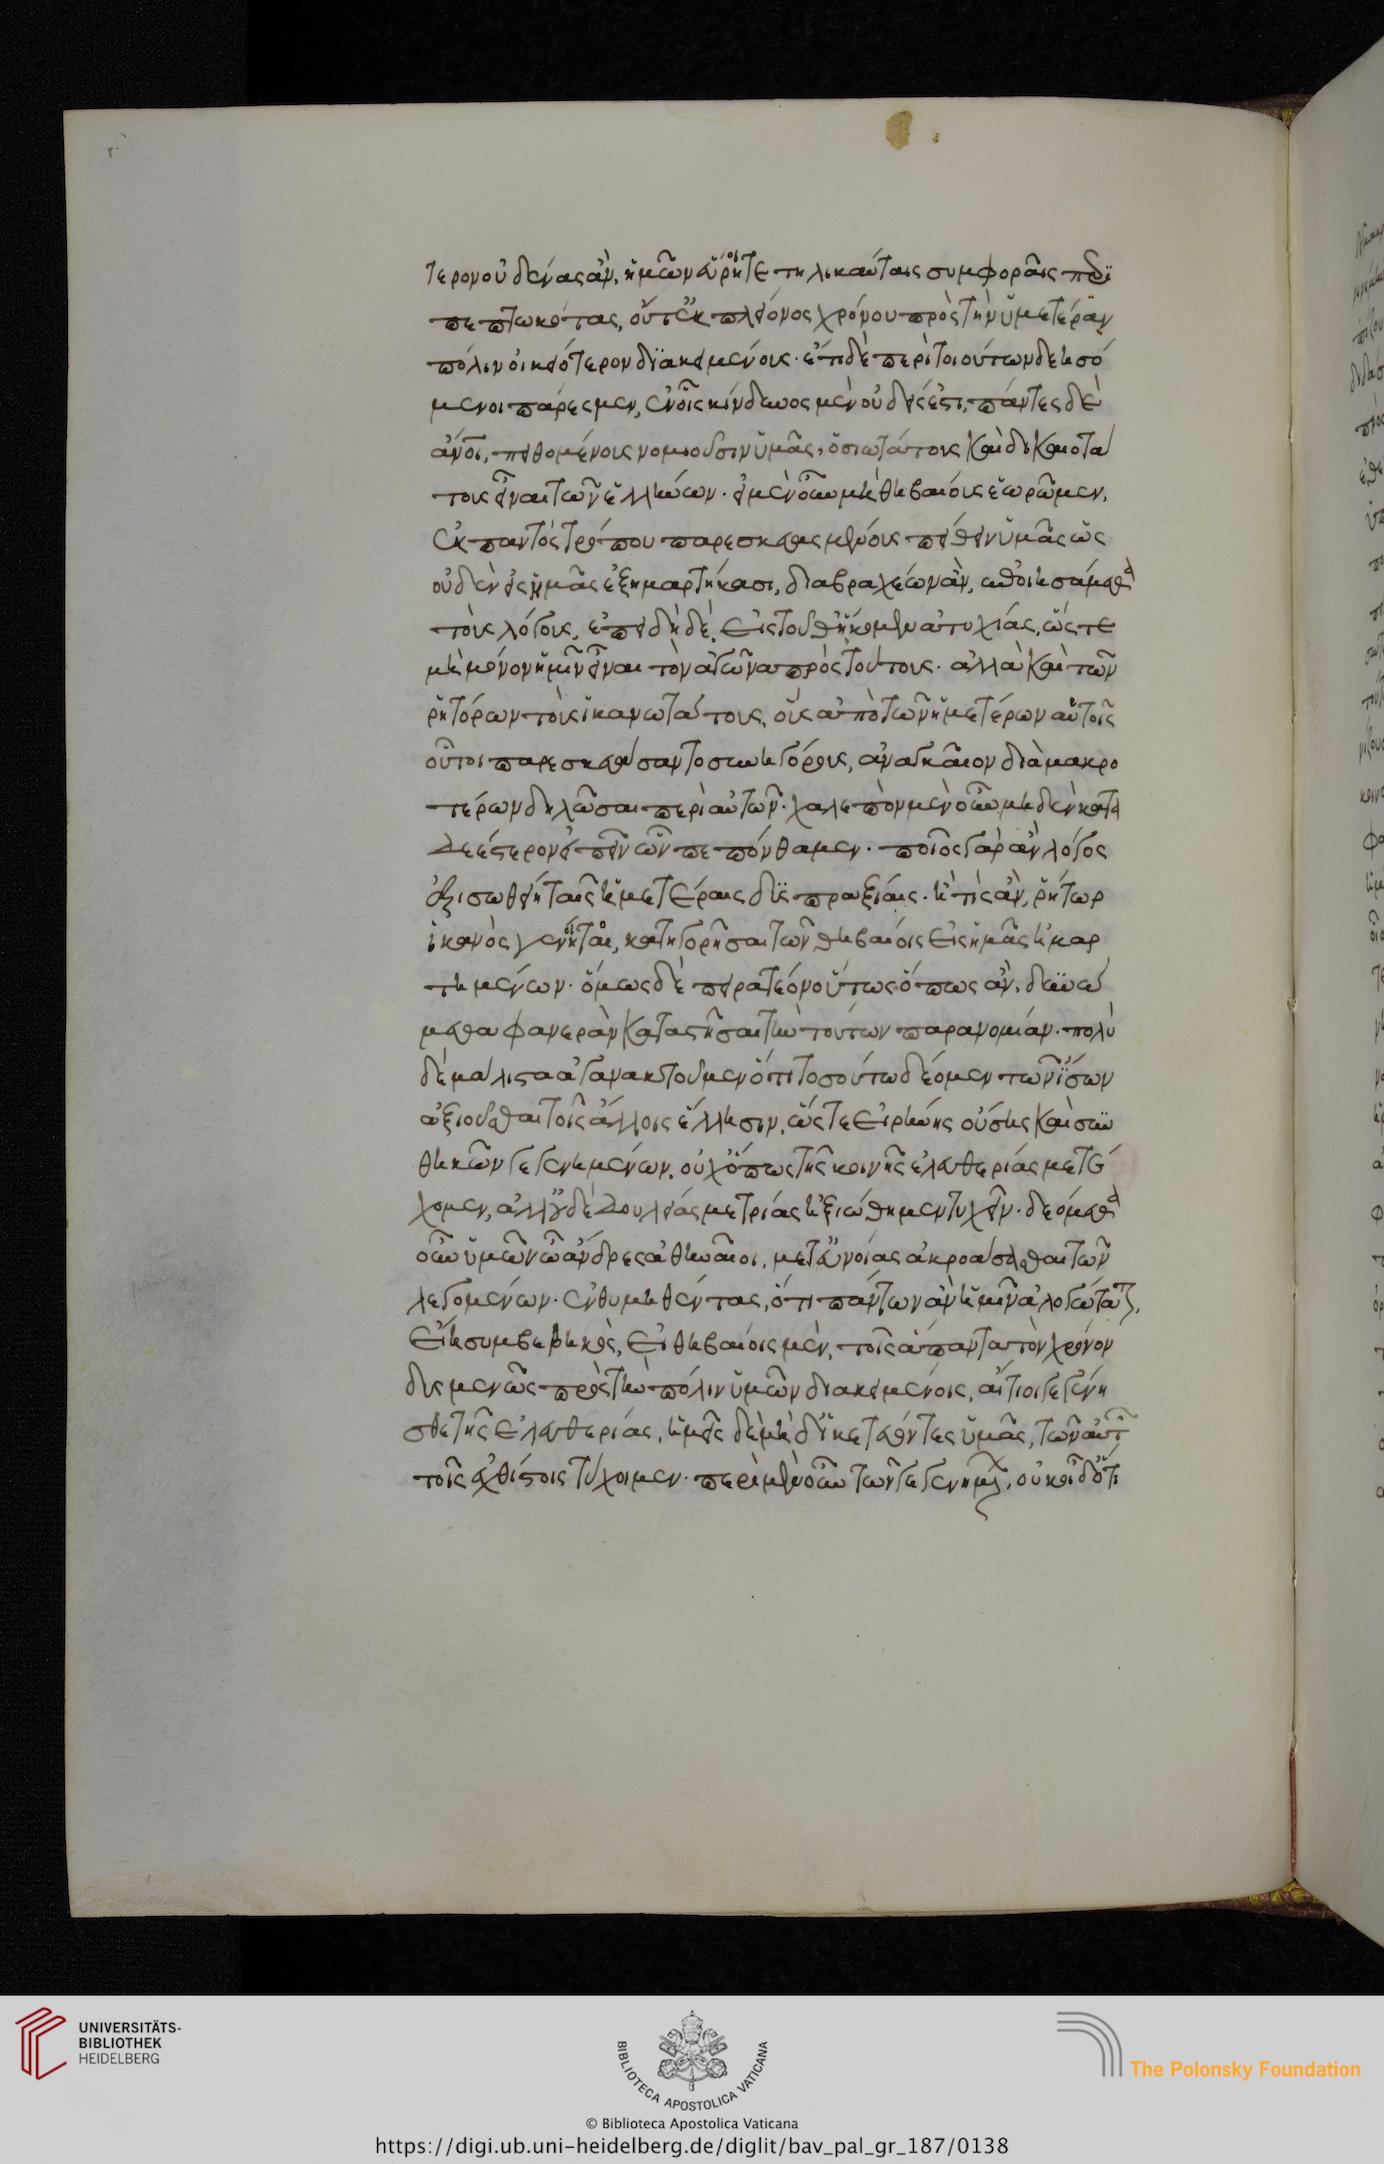 τερον οὐδένας ἂν ἡμῶν εὕρητε τηλικαύταις συμφοραῖς περι
πεπτωκότας, οὔτ' ἐκ πλείονος χρόνου πρὸς τὴν ὑμετέραν
πόλιν οἰκειότερον διακειμένους. ἔτι δὲ περὶ τοιούτων δεησό
μενοι πάρεσμεν, ἐν οἷς κίνδυνος μὲν οὐδείς ἐστι, πάντες δὲ
ἄνοι, πειθομένοις νομιοῦσιν ὑμᾶς, ὁσιωτάτους καὶ δικαιοτά
τους εἶναι τῶν ἑλλήνων. εἰ μὲν οὖν μὴ θηβαίους ἑωρῶμεν,
ἐκ παντὸς τρόπου παρεσκευασμένους πείθειν ὑμᾶς ὡς
οὐδὲν εἰς ἡμᾶς ἐξημαρτήκασι, διὰ βραχέων ἂν, ἐποιησάμεθα
τοὺς λόγους, ἐπειδὴ δὲ, εἰς τοῦθ' ἥκομεν ἀτυχίας, ὥς τε
μὴ μόνον ἡμῖν εἶναι τὸν ἀγῶνα πρὸς τούτους. ἀλλὰ καὶ τῶν
ῥητόρων τοὺς ἱκανωτάτους, οὓς ἀπὸ τῶν ἡμετέρων αὑτοῖς
οὗτοι παρεσκευάσαντο συνηγόρους, ἀναγκαῖον διὰ μακρο
τέρων δηλῶσαι περὶ αὐτῶν. χαλεπὸν μὲν οὖν μηδὲν κατα
δεέστερον εἰπεῖν ὧν πεπόνθαμεν. ποῖος γὰρ ἂν λόγος
ἐξισωθείη ταῖς ἡμετέραις δυσπραξίαις. ἢ τίς ἂν, ῥήτωρ
ἱκανὸς γένηται, κατηγορῆσαι τῶν θηβαίοις εἰς ἡμᾶς ἡμαρ
τημένων. ὅμως δὲ πειρατέον οὕτως ὅπως ἂν, δυνώ
μεθα φανερὰν καταστῆσαι τὴν τούτων παρανομίαν. πολὺ
δὲ μάλιστα ἀγανακτοῦμεν ὅτι τοσούτω δέομεν τῶν ἴσων
ἀξιοῦσθαι τοῖς ἄλλοις ἕλλησιν, ὥς τε εἰρήνης οὔσης καὶ συν
θηκῶν γεγενημένων, οὐχ ὅπως τῆς κοινῆς ἐλευθερίας μετέ
χομεν, ἀλλ' οὐδὲ δουλείας μετρίας ἠξιώθημεν τυχεῖν. δεόμεθα
οὖν ὑμῶν ὦ ἄνδρες ἀθηναῖοι, μετ' εὐνοίας ἀκροάσασθαι τῶν
λεγομένων. ἐνθυμηθέντας, ὅτι πάντων ἂν ἡμῖν ἀλογώτατον,
εἴη συμβεβηκὸς, εἰ θηβαίοις μὲν, τοῖς ἅπαντα τὸν χρόνον
δυσμενῶς πρὸς τὴν πόλιν ὑμῶν διακειμένοις, αἴτιοι γεγένη
σθε τῆς ἐλευθερίας, ἡμεῖς δὲ μὴ δ' ἱκετεύοντες ὑμᾶς, τῶν αὐτ
τοῖς ἐχθίστοις τύχοιμεν. περὶ μὲν οὖν τῶν γεγενημένων, οὐκ οἶδ' ὅτι
UNIVERSITÄTS-
BIBLIOTHEK
HEIDELBERG
BIBLIOTECA APOSTOLICA VATICANA
The Polonsky Foundation
© Biblioteca Apostolica Vaticana
https://digi.ub.uni-heidelberg.de/diglit/bav_pal_gr_187/0138